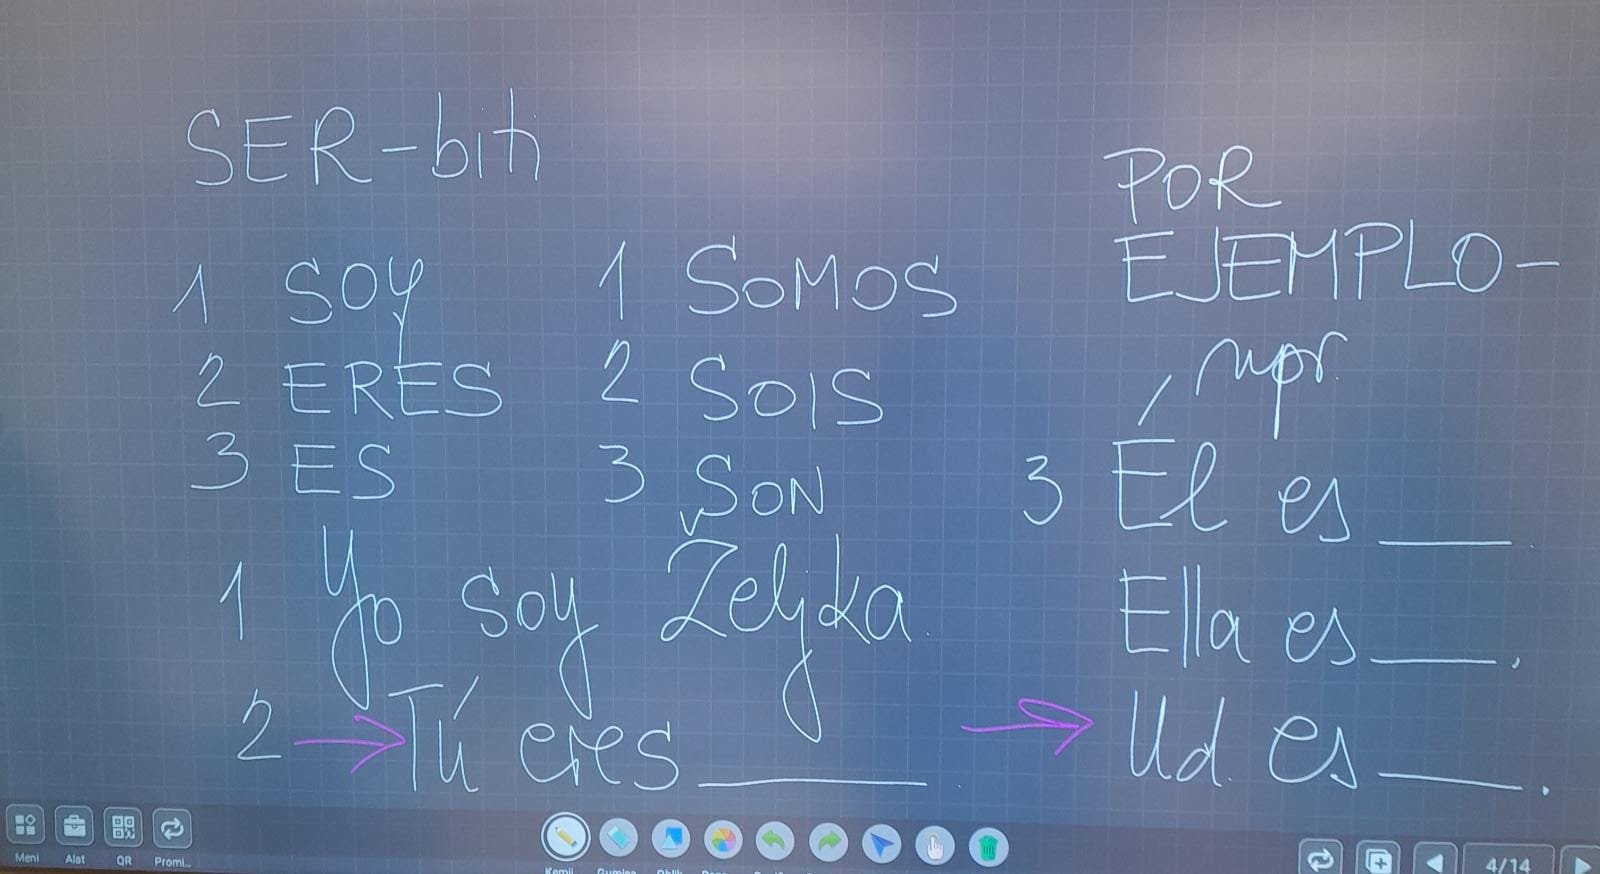 SER-biti
1 SOY
2 ERES
3 ES
1 SOMOS
2 SOIS
3 SON
1 Yo soy Željka.
2 → Tú eres ____.
POR
EJEMPLO-
npr.
3 Él es ___.
Ella es ___.
→ Ud. es ___.
Meni
Alat
QR
Promi...
4/14